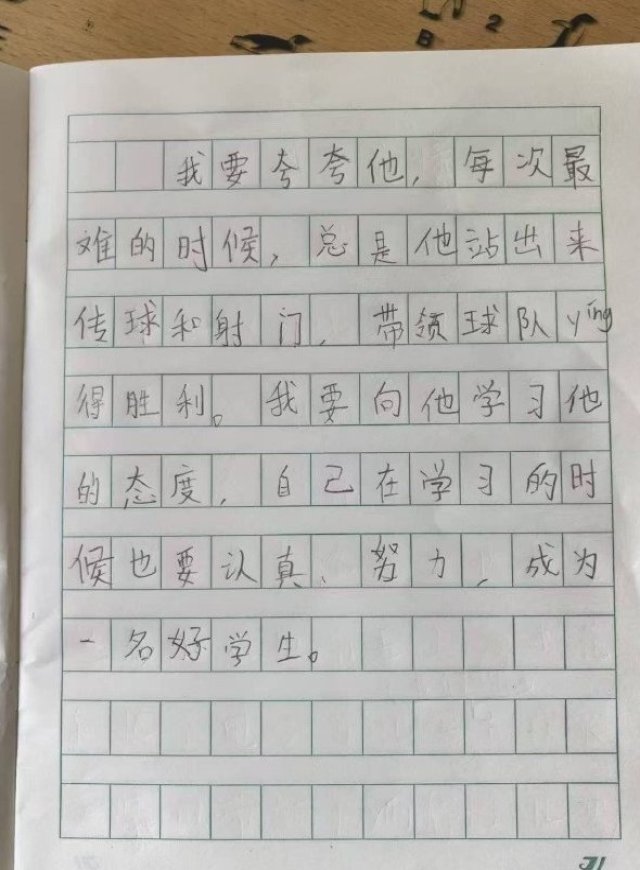 B 2
我要夸夸他，每次最
难的时候，总是他站出来
传球和射门，带领球队yíng
得胜利。我要向他学习他
的态度，自己在学习的时
候也要认真、努力，成为
一名好学生。